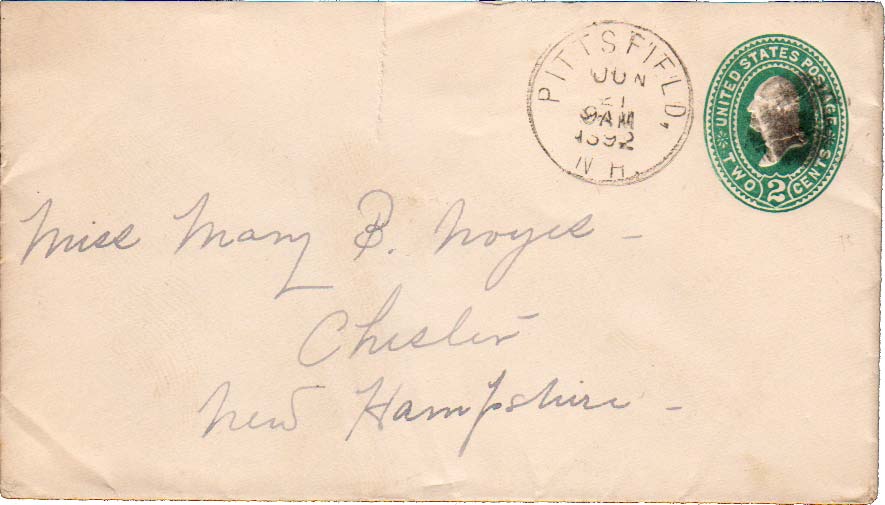 PITTSFIELD,
JUN
21
9AM
1892
N.H.
UNITED STATES POSTAGE
TWO 2 CENTS
Miss Mary B. Noyes -
Chester
New Hampshire -